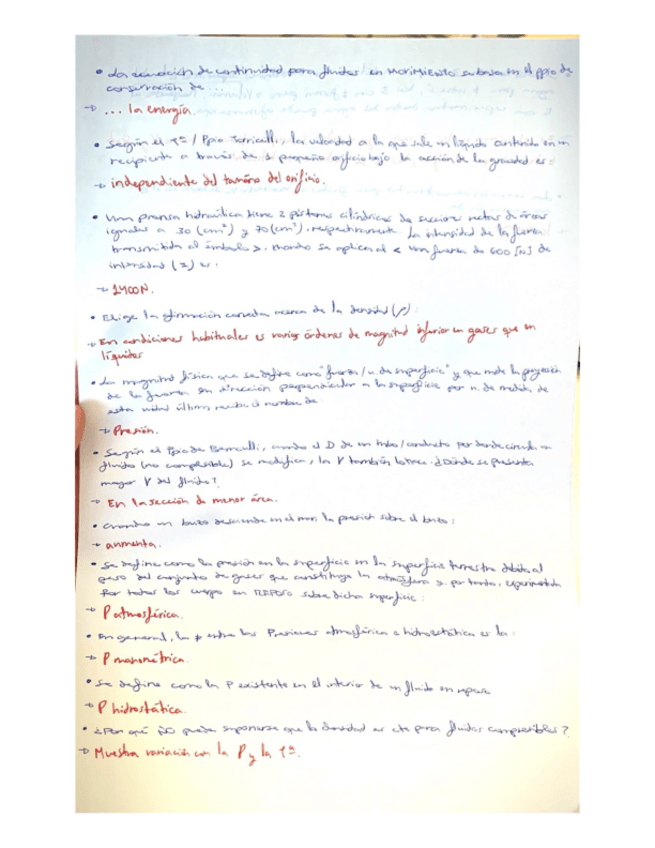 • La ecuación de continuidad para fluidos en MOVIMIENTO se basa en el ppio de
conservación de ...
→ ... la energía.
• Según el Tª / Ppio Torricelli, la velocidad a la que sale un líquido contenido en un
recipiente a través de 1 pequeño orificio bajo la acción de la gravedad es:
→ independiente del tamaño del orificio.
• Una prensa hidráulica tiene 2 pistones cilíndricos de secciones rectas de áreas
iguales a 30 (cm²) y 70 (cm²), respectivamente. La intensidad de la fuerza
transmitida al émbolo >, cuando se aplica al < una fuerza de 600 [N] de
intensidad (≈) es:
→ 1400N.
• Elige la afirmación correcta acerca de la densidad (ρ):
→ En condiciones habituales es varios órdenes de magnitud inferior en gases que en
líquidos
• La magnitud física que se define como "fuerza / u. de superficie" y que mide la proyección
de la fuerza en dirección perpendicular a la superficie por u. de medida de
esta última, recibe el nombre de
→ Presión.
• Según el Ppio de Bernoulli, cuando el D de un tubo / conducto por donde circula un
fluido (no compresible) se modifica, la V también lo hace. ¿Dónde se presenta
mayor V del fluido?
→ En la sección de menor área.
• Cuando un buzo desciende en el mar la presión sobre el buzo:
→ aumenta.
• Se define como la presión en la superficie en la superficie terrestre debida al
peso del conjunto de gases que constituye la atmósfera y, por tanto, experimentada
por todos los cuerpos en REPOSO sobre dicha superficie:
→ P atmosférica.
• En general, la ≠ entre las Presiones atmosférica e hidrostática es la:
→ P manométrica.
• Se define como la P existente en el interior de un fluido en reposo
→ P hidrostática.
• ¿Por qué NO puede suponerse que la densidad es cte para fluidos compresibles?
→ Muestra variación con la P y la Tª.